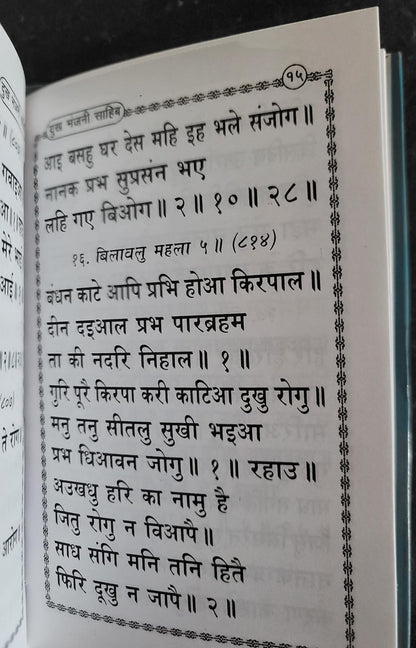 दुख भंजनी साहिब
१५
आइ बसहु घर देस महि इह भले संजोग॥
नानक प्रभ सुप्रसंन भए
लहि गए बिओग॥ २॥ १०॥ २८॥
१६. बिलावलु महला ५॥ (८१४)
बंधन काटे आपि प्रभि होआ किरपाल॥
दीन दइआल प्रभ पारब्रहम
ता की नदरि निहाल॥ १॥
गुरि पूरै किरपा करी काटिआ दुखु रोगु॥
मनु तनु सीतलु सुखी भइआ
प्रभ धिआवन जोगु॥ १॥ रहाउ॥
अउखधु हरि का नामु है
जितु रोगु न विआपै॥
साध संगि मनि तनि हितै
फिरि दूखु न जापै॥ २॥